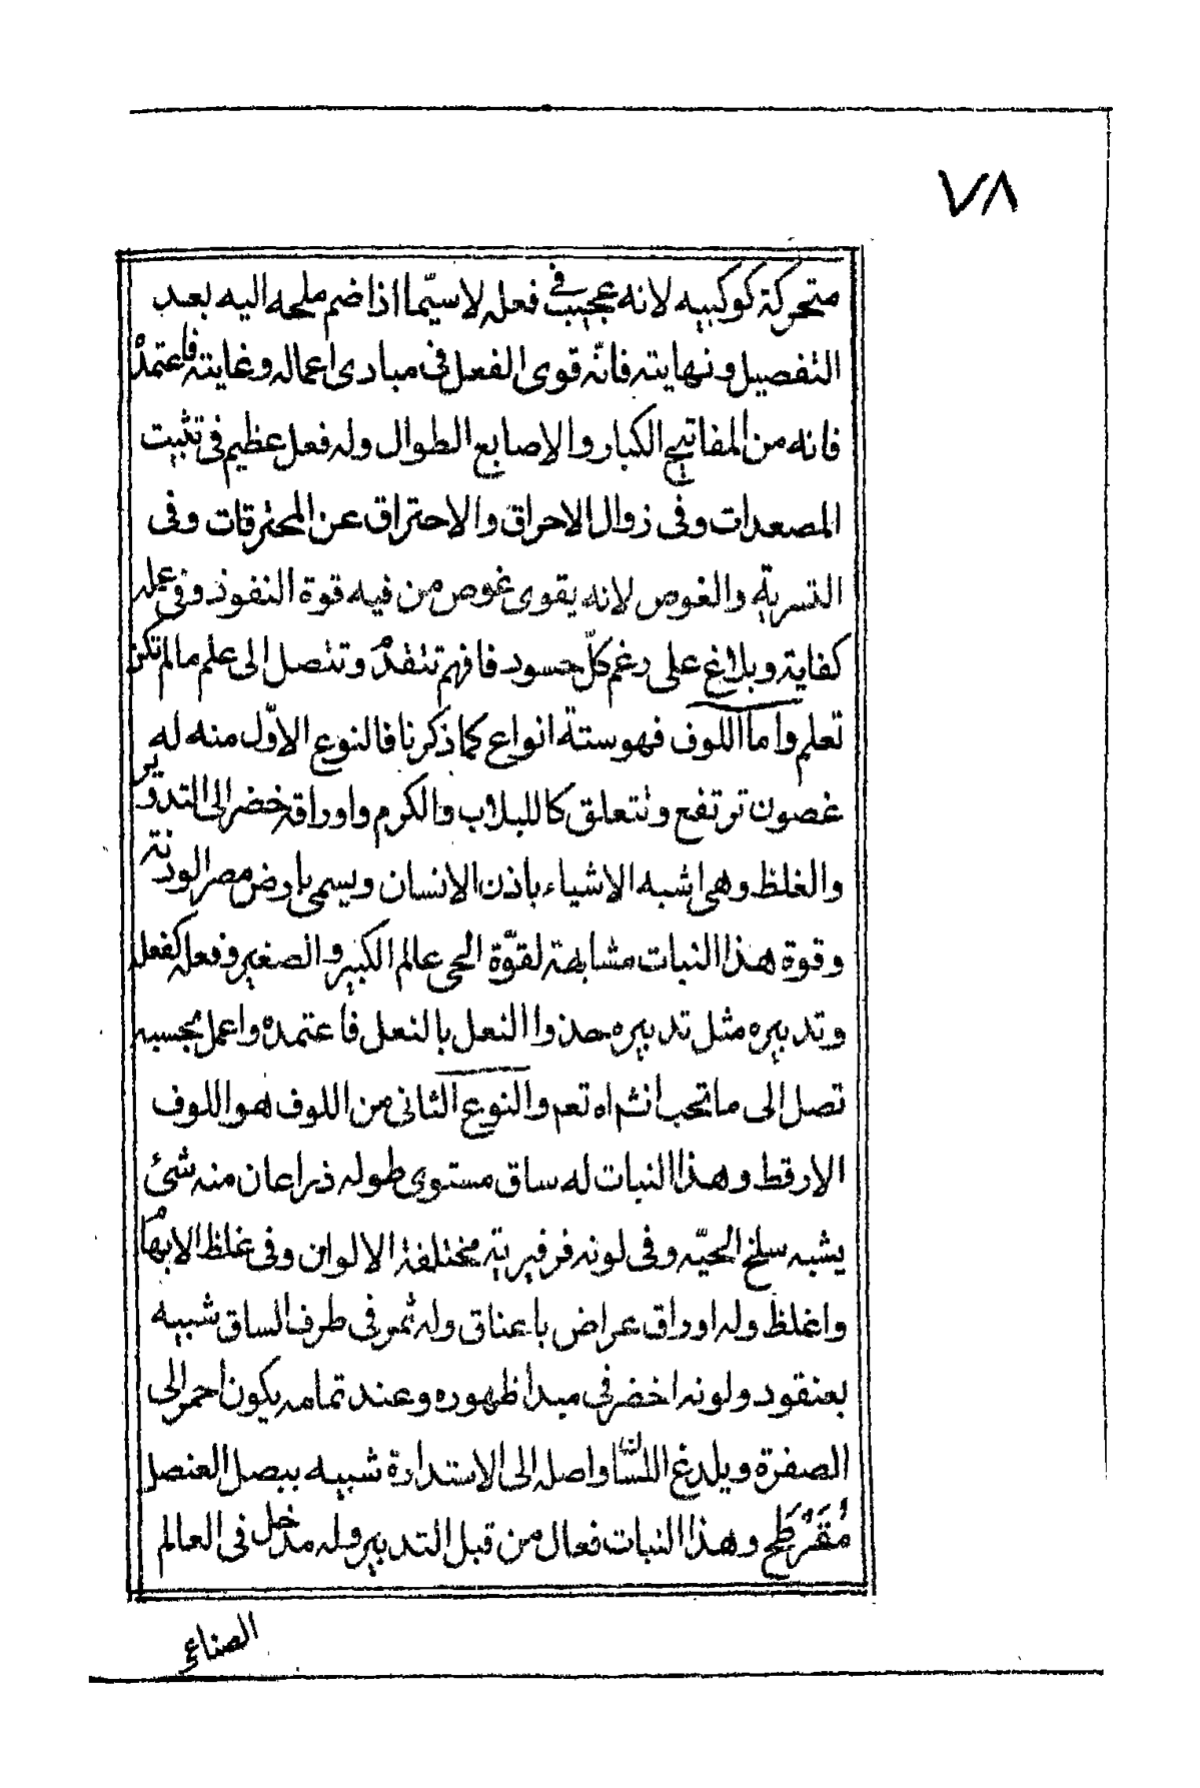 ٧٨
متحركة كوكبيه لانه عجيب في فعله لاسيّما اذا ضم ملحه اليه بعد
التفصيل ونهايته فانّه قوى الفعل فى مبادى اعماله وغايته فاعتمدْ
فانه من المفاتيح الكبار والاصابع الطوال وله فعل عظيم فى تثبيت
المصعدات وفى زوال الاحراق والاحتراق عن المحترقات وفى
التسرية والغوص لانه يقوى غوص من فيه قوة النفوذ وفى عمله
كفاية وبلاغ على رغم كلّ حسود فافهم تتقدم وتتصل الى علم مالم تكن
تعلم واما اللوف فهو ستة انواع كما ذكرنا فالنوع الاوّل منه له
غصون ترتفع وتتعلق كاللبلاب والكرم واوراقه خضر الى التدوير
والغلظ وهى اشبه الاشياء باذن الانسان ويسمى بارض مصر الودنة
وقوة هذا النبات مشابهة لقوّة الحى عالم الكبير والصغير وفعله كفعله
وتدبيره مثل تدبيره حذوا النعل بالنعل فاعتمده واعمل بحسبه
تصل الى ما تحب انشاه تعم والنوع الثانى من اللوف هو اللوف
الارقط وهذا النبات له ساق مستوى طوله ذراعان منه شئ
يشبه سلخ الحيّه وفى لونه فرفيريّة مختلفة الالوان وفى غلظ الابهام
واغلظ وله اوراق عراض باعناق وله ثمر فى طرف الساق شبيه
بعنقود ولونه اخضر فى مبدا ظهوره وعند تمامه يكون احمر الى
الصفرة ويلدغ اللسان واصله الى الاستدارة شبيه ببصل العنصل
مُقَرْطَح وهذا النبات فعال من قبل التدبير وله مدخل فى العالم
الصناعى